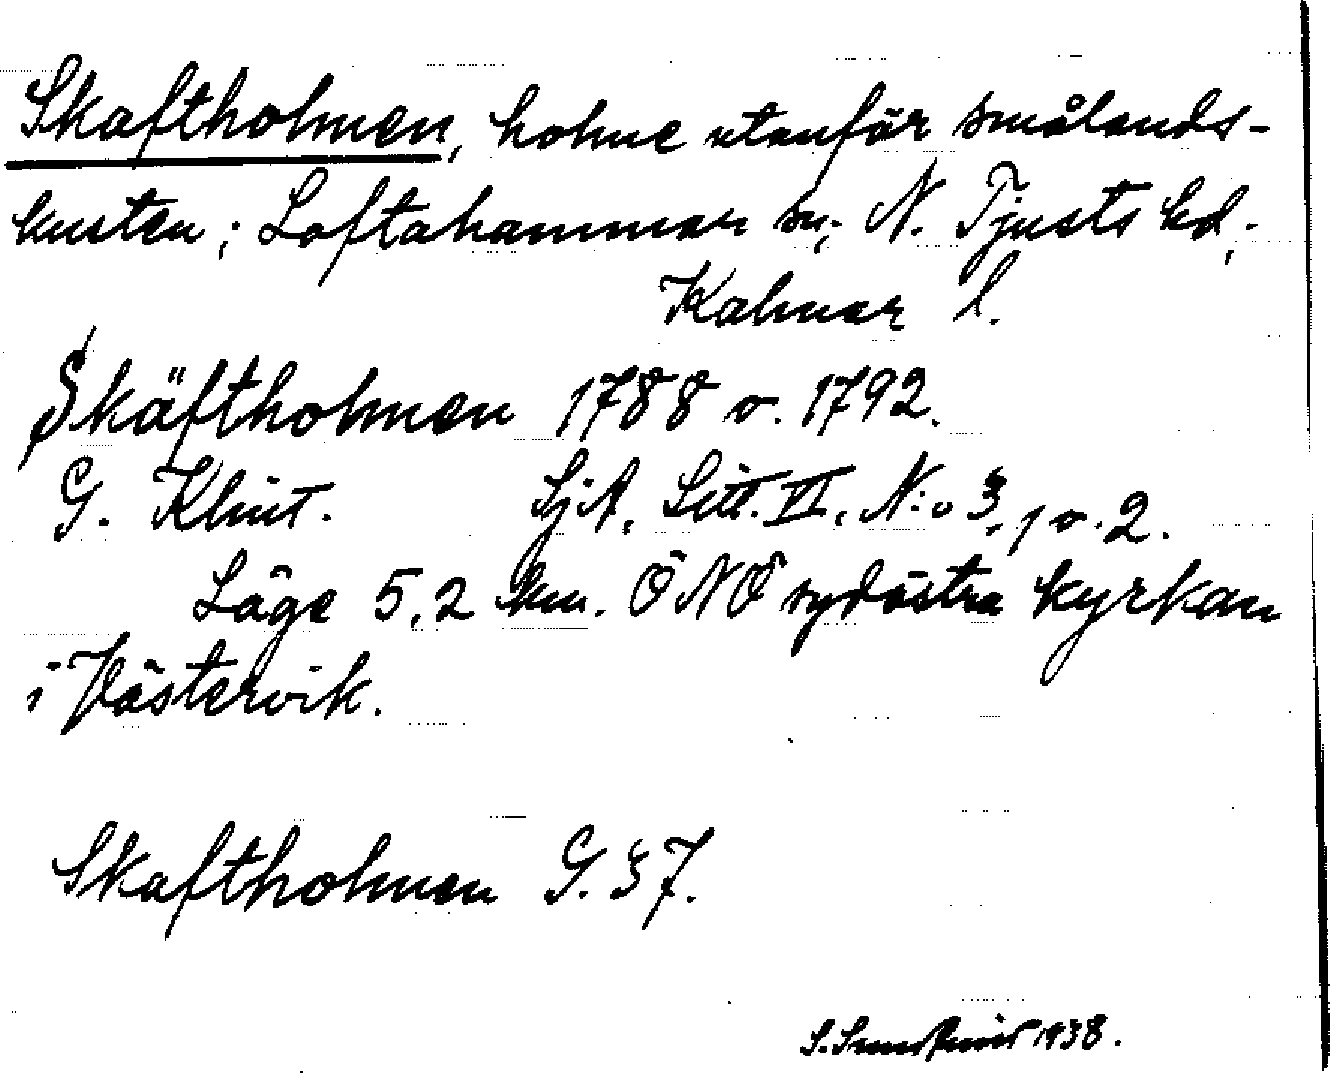 Skaftholmen, holme utanför smålands-
kusten; Loftahammar sn; N. Tjusts hd,
Kalmar l.
Skäftholmen 1788 o. 1792.
G. Klint. SjA, Litt. VI, N:o 3, 1 o. 2.
Läge 5,2 km. ÖNÖ sydöstra kyrkan
i Västervik.
Skaftholmen G. 37.
S. Sundkvist 1938.